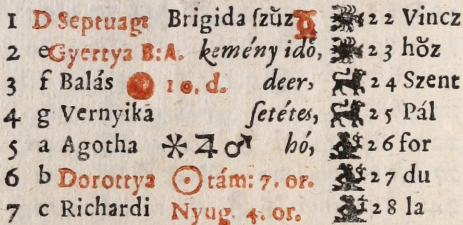 1 D Septuag: Brigida ſzűz ♉ 22 Vincz
2 e Gyertya B:A. kemény idö, 23 hőz
3 f Balás 10. d. deer, 24 Szent
4 g Vernyika ſetétes, 25 Pál
5 a Agotha ✳ ♃ ♂ hó, 26 for
6 b Dorottya ☉ tám: 7. or. 27 du
7 c Richardi Nyug. 4. or. 28 la